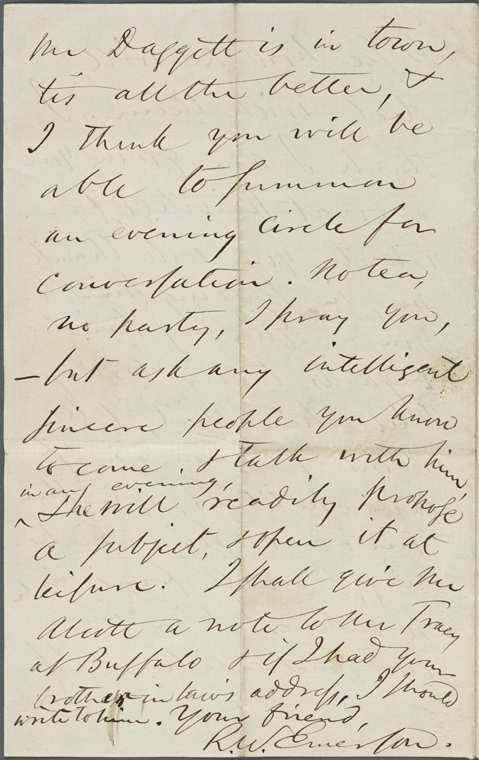 Mr Daggett is in town,
tis all the better, &
I think you will be
able to summon
an evening circle for
conversation. No tea,
no party, I pray you,
– but ask any intelligent
sincere people you know
to come & talk with him,
in an evening,
^ & he will readily propose
a subject, & open it at
leisure. I shall give Mr
Alcott a note to Mr Tracy
at Buffalo & if I had your
brother in law's address, I should
write to him. Your friend,
R. W. Emerson.